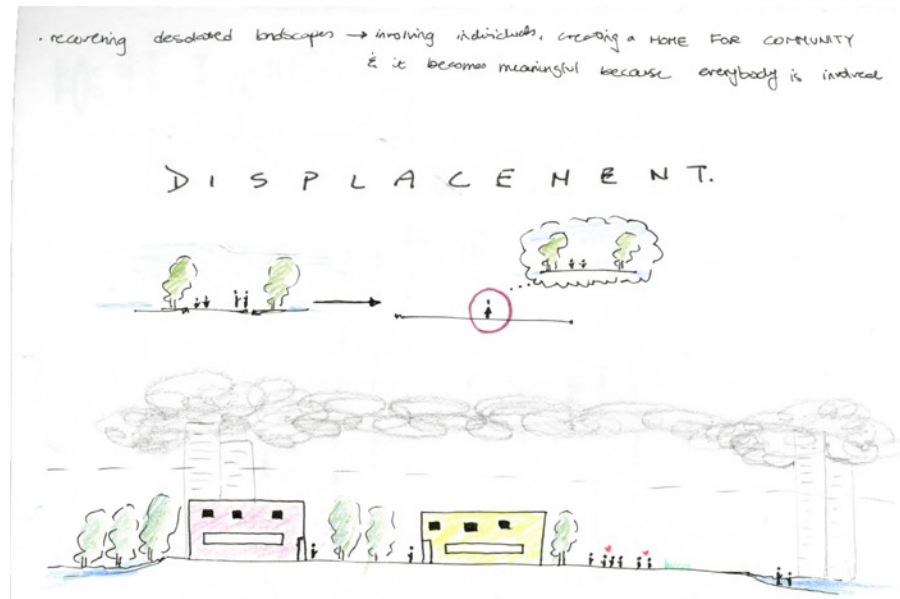 · recovering desolated landscapes → involving individuals, creating a HOME FOR COMMUNITY
& it becomes meaningful because everybody is involved
DISPLACEMENT.